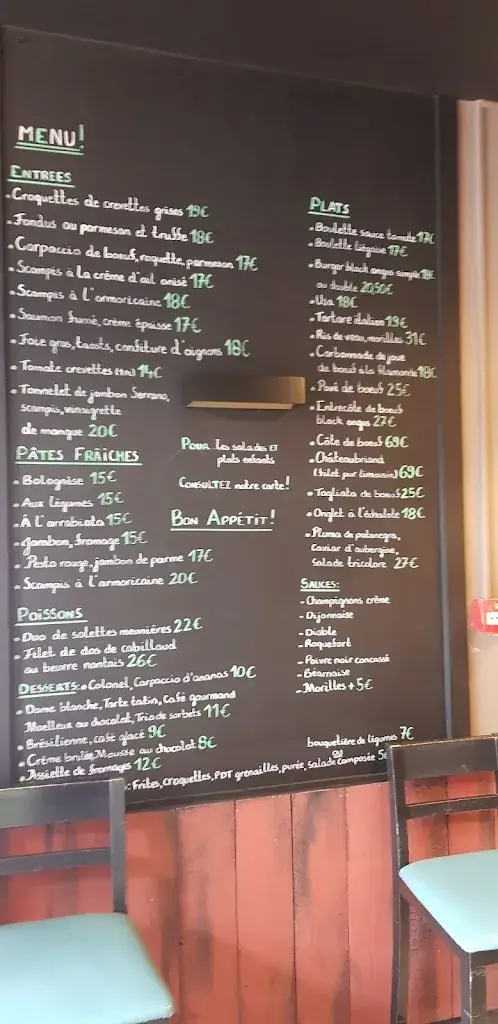 MENU!
ENTREES
• Croquettes de crevettes grises 19€
• Fondus au parmesan et truffe 18€
• Carpaccio de boeuf, roquette, parmesan 17€
• Scampis à la crème d'ail anisé 17€
• Scampis à l'armoricaine 18€
• Saumon fumé, crème épaisse 17€
• Foie gras, toasts, confiture d'oignons 18€
• Tomate crevettes (1m) 14€
• Tonnelet de jambon Serrano,
scampis, vinaigrette
de mangue 20€
PÂTES FRAÎCHES
• Bolognaise 15€
• Aux légumes 15€
• À l'arrabiata 15€
• Jambon, fromage 15€
• Pesto rouge, jambon de parme 17€
• Scampis à l'armoricaine 20€
POISSONS
• Duo de solettes meunières 22€
• Filet de dos de cabillaud
au beurre nantais 26€
DESSERTS: • Colonel, Carpaccio d'ananas 10€
• Dame blanche, Tarte tatin, Café gourmand
Moelleux au chocolat, Trio de sorbets 11€
• Brésilienne, café glacé 9€
• Crème brulée, Mousse au chocolat 8€
• Assiette de fromages 12€
POUR les salades ET
plats enfants
CONSULTEZ notre carte!
BON APPÉTIT!
PLATS
• Boulette sauce tomate 17€
• Boulette liégeoise 17€
• Burger black angus simple 18€
ou double 20,50€
• Usa 18€
• Tartare italien 19€
• Ris de veau, morilles 31€
• Carbonnade de joue
de boeuf à la flamande 18€
• Pavé de boeuf 25€
• Entrecôte de boeuf
black angus 27€
• Côte de boeuf 69€
• Châteaubriand
(filet pur limousin) 69€
• Tagliata de boeuf 25€
• Onglet à l'échalote 18€
• Pluma de patanegra,
caviar d'aubergine,
salade tricolore 27€
SAUCES:
- Champignons crème
- Dijonnaise
- Diable
- Roquefort
- Poivre noir concassé
- Béarnaise
- Morilles + 5€
bouquetière de légumes 7€
ou
: Frites, croquettes, PDT grenailles, purée, Salade composée 5€